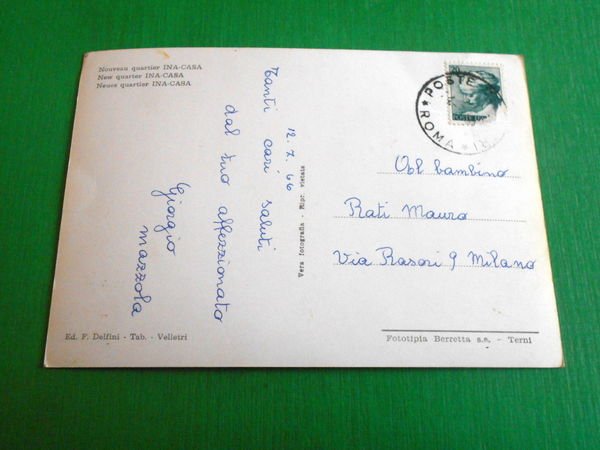 Nouveau quartier INA-CASA
New quarter INA-CASA
Neues quartier INA-CASA
12.7.66
Tanti cari saluti
dal tuo affezzionato
Giorgio
mazzola
Vera fotografia - Ripr. vietata
POSTE
ROMA
Al bambino
Rati Mauro
Via Rasori 9 Milano
Ed. F. Delfini - Tab. - Velletri
Fototipia Berretta s.a. - Terni